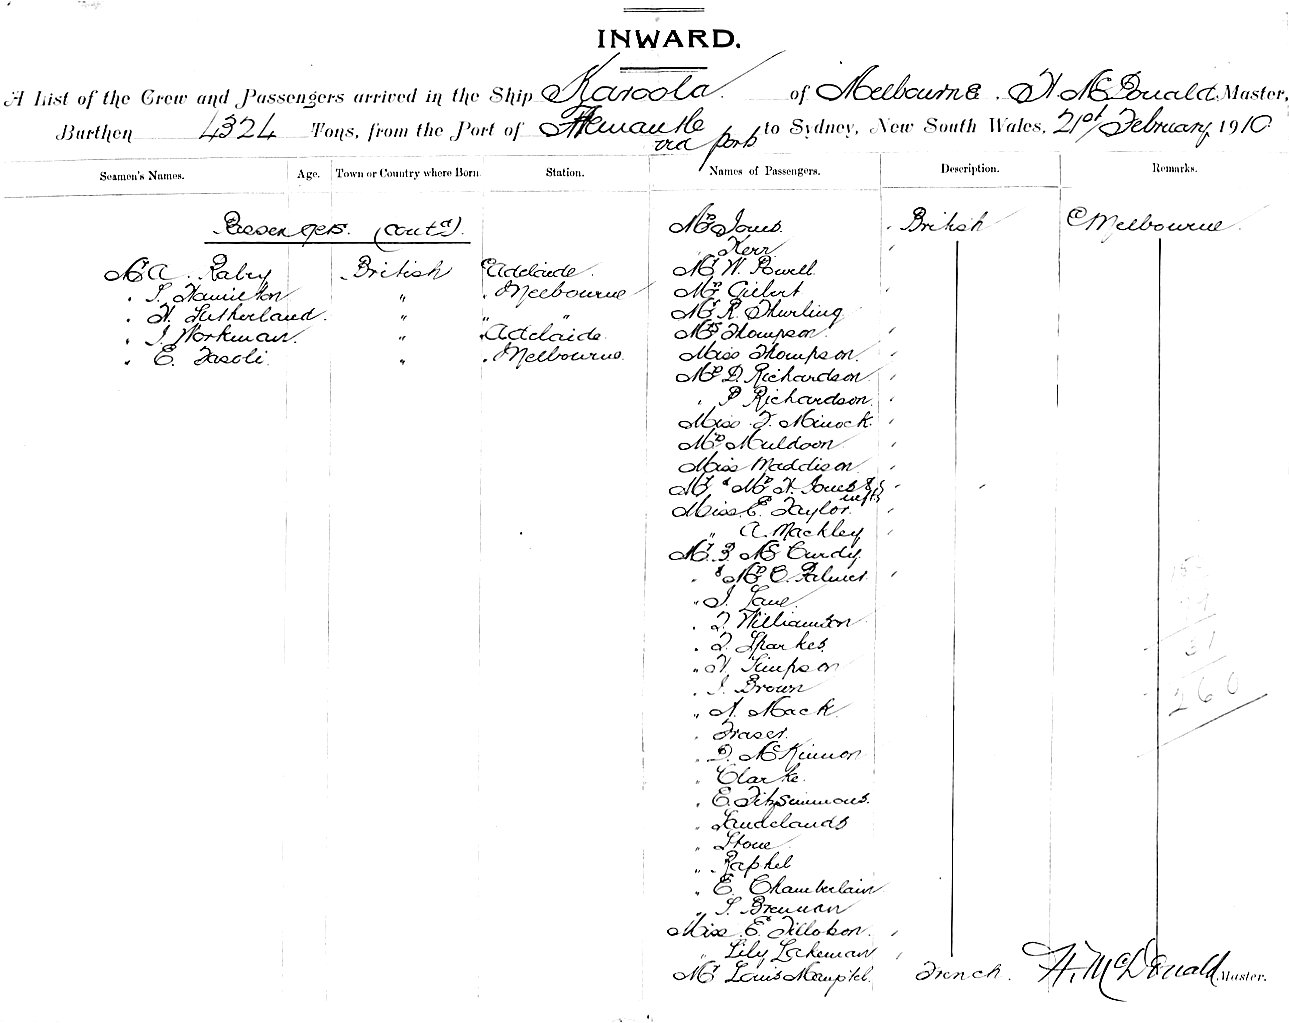 INWARD.
A List of the Crew and Passengers arrived in the Ship Karoola of Melbourne, H McDonald, Master,
Burthen 4324 Tons, from the Port of Fremantle via ports to Sydney, New South Wales, 21st February 1910
Seamen's Names. Age. Town or Country where Born. Station. Names of Passengers. Description. Remarks.
Passengers. (contd).
Mr A. Raby British Adelaide.
" S. Hamilton " " Melbourne
" H. Sutherland. " " "
" J. Workman. " " Adelaide.
" E. Fasoli. " " Melbourne.
Mrs Jones. British Melbourne
" Kerr
Mr W. Powell
Mrs Gilbert
Mr R. Thurling
Mrs Thompson
Miss Thompson.
Mrs D. Richardson
" P Richardson
Miss F. Minock.
Mrs Muldoon
Miss Maddison
Mr & Mrs H. Jones & inft
Miss E. Taylor
" A. Mackley
Mr J. McCurdy
" & Mrs C. Palmer
" J. Lane
" J. Williamson
" J. Sparkes
" H. Simpson
" J. Brown
" A. Mack
" Fraser.
" D. McKinnon
" Clarke
" E. Fitzsimmons.
" Sandelands
" Stone
" Raphel
" E. Chamberlain
" S. Brennan
Miss E. Tillotson.
" Lily Lakeman
Mr Louis French.
31
260
H. McDonald, Master.